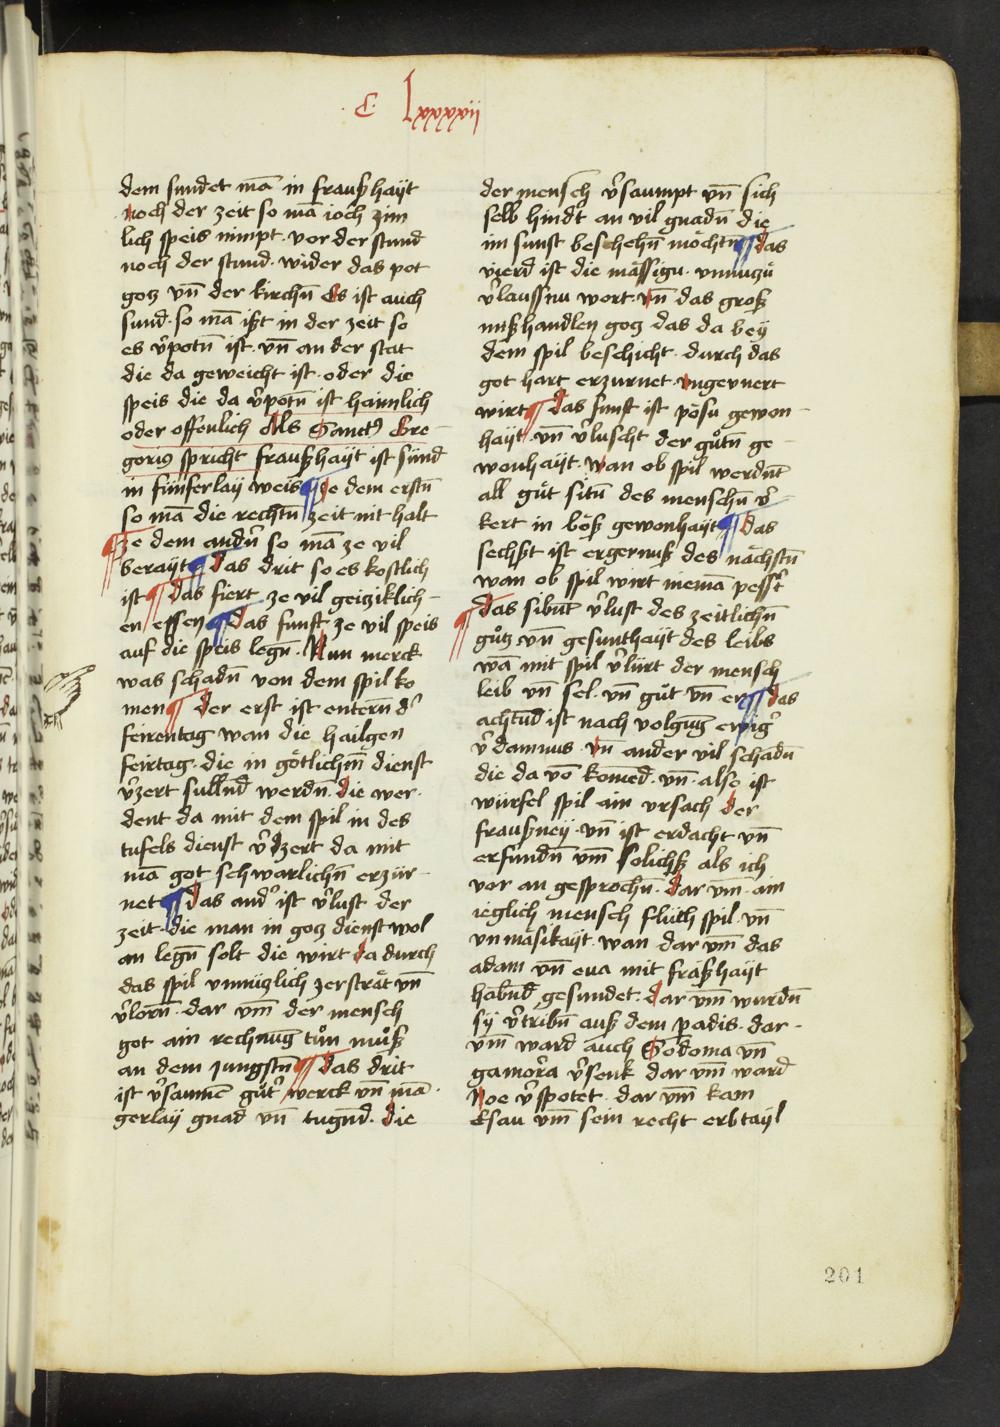 C Lxxxxvij
dem sundet mā in frausßhaÿt
noch der zeit so mā ioch zim
lich speis nimpt. vor der stund
noch der stund. wider das pot
gotz vn̄ der kirchn̄ Es ist auch
sund. so mā ißt in der zeit so
es v̓potn̄ ist. vn̄ an der stat
die da geweicht ist. oder die
speis die da v̓potn̄ ist haimlich
oder offenlich Als Sanctꝰ Gre-
goriꝰ spricht fraußhaÿt ist sünd
in fünferlaÿ weis ¶ ze dem erstn̄
so mā die rechtn̄ zeit nit halt
¶ ze dem andn̓ so mā ze vil
beraÿt ¶ Das drit so es kostlich
ist ¶ das fiert ze vil geiziklich-
en essen ¶ das funft ze vil speis
auf die speis legn̄. Nun merck
was schadn̄ von dem spil ko
men ¶ der erst ist entern̄ d̓
feirentag wan die hailgen
feirtag. die in götlichm̄ dienst
v̓zert sullnd̄ werdn̄. die wer-
dent da mit dem spil in des
tufels dienst v̓dzert da mit
mā got schwarlichn̄ erzür-
net ¶ das and̓ ist v̓lust der
zeit. die man in gotz dienst wol
an legn̄ solt die wirt da durch
das spil vnnützlich zersträt vn̄
v̓lorn̄. dar vm̄ der mensch
got ain rechnūg tůn můß
an dem jungstn̄ ¶ das drit
ist v̓saumē gůt̓ werck vn̄ mā-
gerlaÿ gnad vn̄ tugnd̄. die
der mensch v̓saumpt vn̄ sich
selb hind̓t an vil gnadn̄ die
im sunst beschehn̄ möchtn̄ ¶ das
vierd ist die mässigu. vnnutzü
v̓laussnu wort. vn̄ das groß
mißhandlen gotz das da beÿ
dem spil beschicht. durch das
got hart erzurnet. vngeunert
wirt ¶ das funft ist pösu gewon-
haÿt. vn̄ v̓luscht der gůtn̄ ge-
wonhaÿt. wan ob spil werdnt̄
all gůt sitn̄ des menschn̄ v̓-
kert in böß gewonhaÿt ¶ das
sechßt ist ergernuß des nächstn̄
wan ob spil wirt niemā pesst̓
¶ das sibnt̄ v̓lust des zeitlichn̄
gůtz vn̄ gesunthaÿt des leibs
wā mit spil v̓lürt der mensch
leib vn̄ sel. vn̄ gůt vn̄ er ¶ das
achtnd̄ ist nach volgūg ewig̓
v̓damnus. vn̄ ander vil schadn̄
die da vō komēd. vn̄. also ist
würfel spil ain vrsach der
fraußneÿ. vn̄ ist erdacht vn̄
erfundn̄ vm̄ solichß als ich
vor an gesprochn̄. dar vm̄. ain
ieglich mensch flüch spil. vn̄
vnmäsikaÿt. wan dar vm̄ das
adam vn̄ eua mit fräßhaÿt
habnd̄ gesundet. dar vm̄ wurdn̄
sÿ v̓tribn̄ auß dem padis. dar-
vm̄ ward auch Sodoma vn̄
gamorra v̓senk dar vm̄ ward
Noe v̓spotet. dar vm̄ kam
Esau vm̄ sein recht erbtaÿl
201